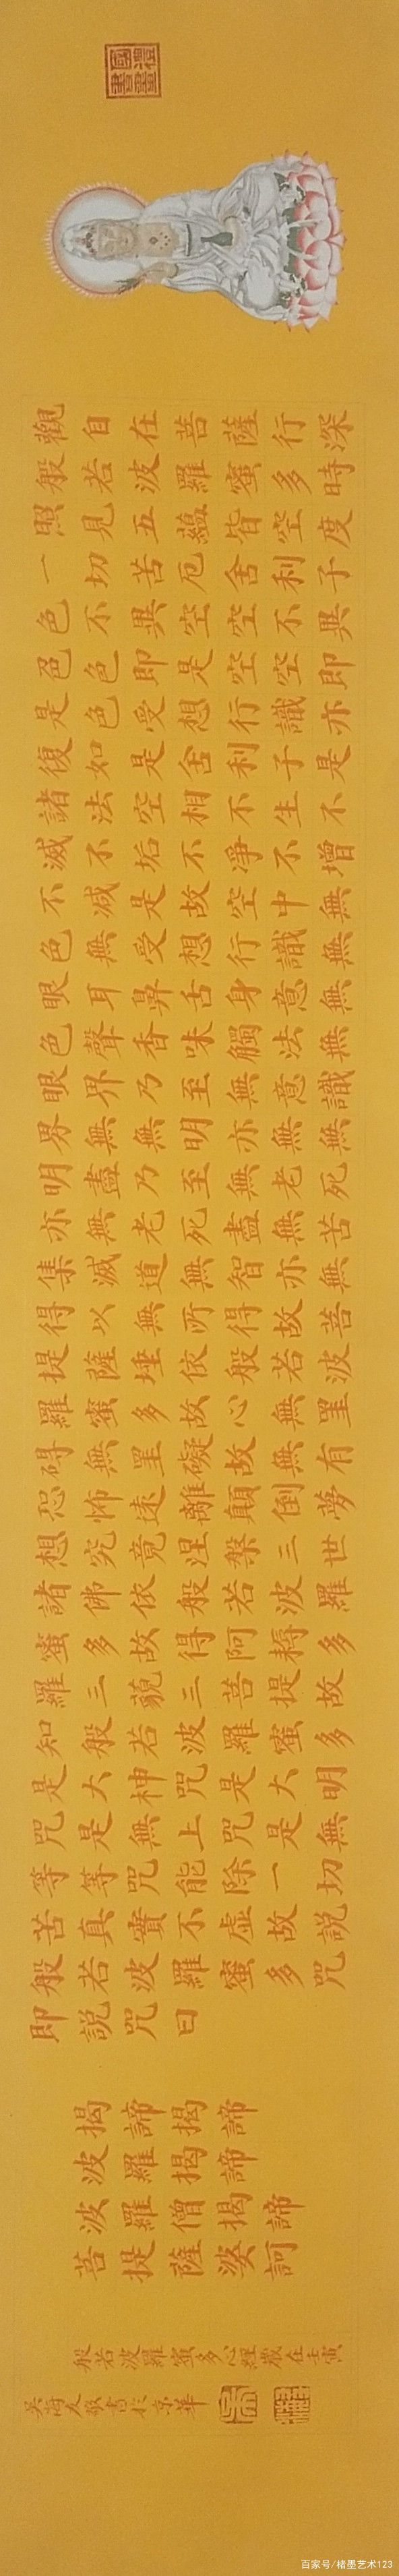 觀自在菩薩行深
般若波羅蜜多時
照見五蘊皆空度
一切苦厄舍利子
色不異空空不異
色色即是空空即
是色受想行識亦
復如是舍利子是
諸法空相不生不
滅不垢不淨不增
不減是故空中無
色無受想行識無
眼耳鼻舌身意無
色聲香味觸法無
眼界乃至無意識
界無無明亦無無
明盡乃至無老死
亦無老死盡無苦
集滅道無智亦無
得以無所得故菩
提薩埵依般若波
羅蜜多故心無罣
碍無罣礙故無有
恐怖遠離顛倒夢
想究竟涅槃三世
諸佛依般若波羅
蜜多故得阿耨多
羅三藐三菩提故
知般若波羅蜜多
是大神咒是大明
咒是無上咒是無
等等咒能除一切
苦真實不虛故説
般若波羅蜜多咒
即説咒曰
揭諦揭諦
波羅揭諦
波羅僧揭諦
菩提薩婆訶
般若波羅蜜多心經歲在壬寅
吳海友敬書於京華
百家号/楮墨艺术123